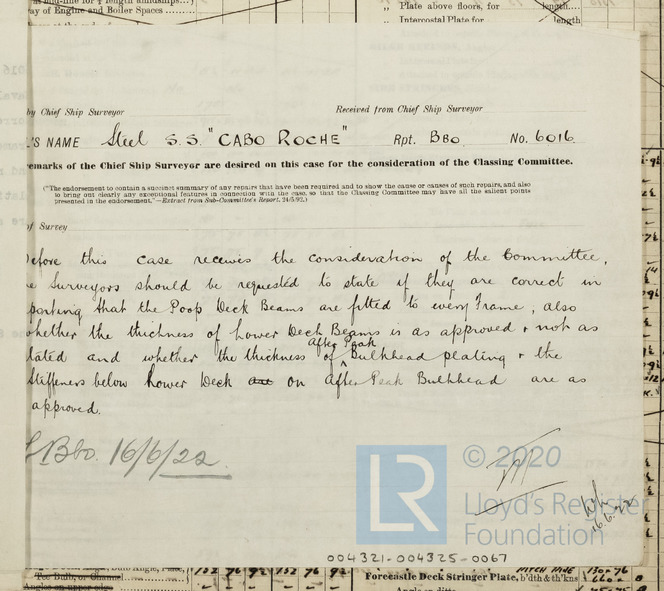 as mid-line for ¾ length amidships...
ay of Engine and Boiler Spaces
„ Plate above floors, for length
„ Intercostal Plate for length
by Chief Ship Surveyor Received from Chief Ship Surveyor
L'S NAME Steel S.S. "CABO ROCHE" Rpt. Bbo No. 6016.
emarks of the Chief Ship Surveyor are desired on this case for the consideration of the Classing Committee.
("The endorsement to contain a succinct summary of any repairs that have been required and to show the cause or causes of such repairs, and also
to bring out clearly any exceptional features in connection with the case, so that the Classing Committee may have all the salient points
presented in the endorsement."—Extract from Sub-Committee's Report, 24/5/92.)
of Survey
efore this case receives the consideration of the Committee,
e Surveyors should be requested to state if they are correct in
porting that the Poop Deck Beams are fitted to every Frame, also
whether the thickness of Lower Deck Beams is as approved & not as
After Peak
tated and whether the thickness of bulkhead plating & the
Stiffeners below Lower Deck are on After Peak Bulkhead are as
approved.
Bbo. 16/6/22.
16.6.22
LR
© 2020
Lloyd's Register
Foundation
004321-004325-0067
Tee Bulb, or Channel
Angles on upper edge
Forecastle Deck Stringer Plate, b'dth & th'kns